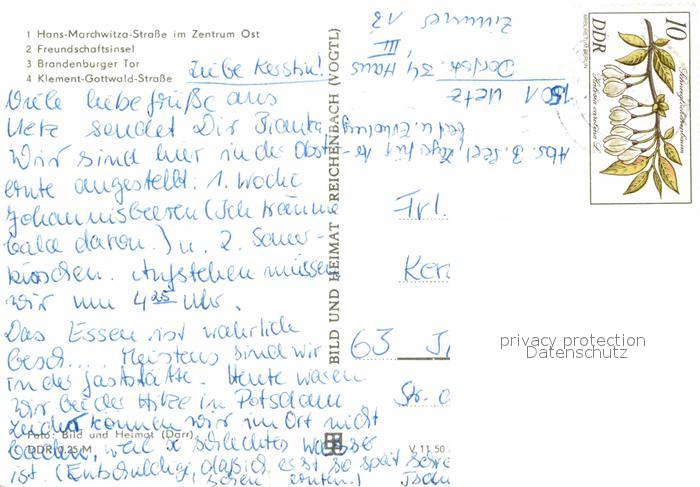 1 Hans-Marchwitza-Straße im Zentrum Ost
2 Freundschaftsinsel
3 Brandenburger Tor
4 Klement-Gottwald-Straße
Liebe Kerstin!
Viele liebe Grüße aus
Uetz sendet Dir Bianka.
Wir sind hier in der Obst-
ernte angestellt. 1. Woche
Johannisbeeren (Ich träume
bald davon.) u. 2. Sauer-
kirschen. Aufstehen müssen
wir um 4 25 Uhr.
Das Essen ist wahrlich
besch.... Meistens sind wir
in der Gaststätte. Heute waren
wir bei der Hitze in Potsdam
Leider können wir im Ort nicht
baden, weil schlechtes Wasser
ist. (Entschuldige, daß ich es so spät
Foto: Bild und Heimat (Darr)
DDR 0,25 M
BILD UND HEIMAT REICHENBACH (VOGTL)
V 11 50
Abs. B. Lager für
u. Erholung
1501 Uetz
Dorfstr. 34 Haus
III
Zimmer 13
Frl.
63
Str. d
10
DDR
Schneeglöckchenbaum
Halesia carolina L.
privacy protection
Datenschutz